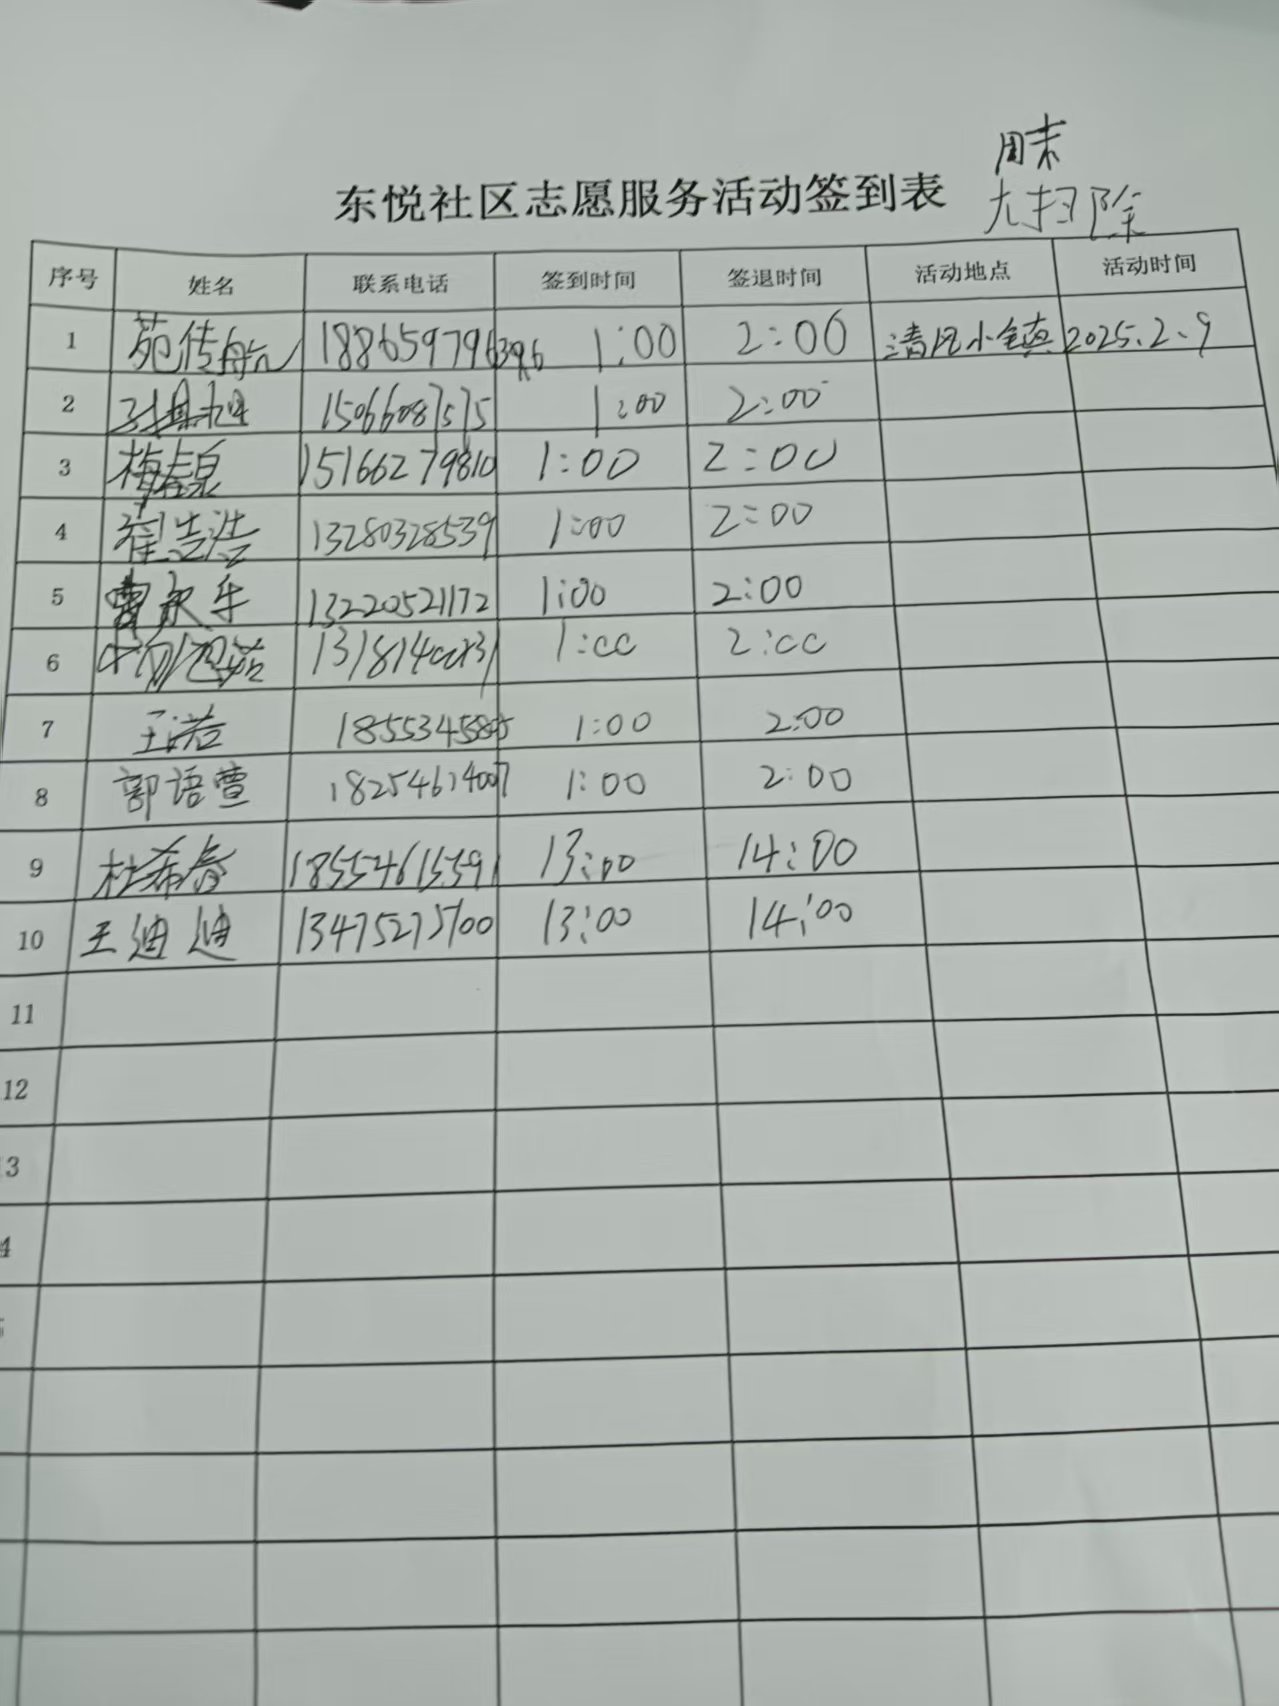 周末
大扫除
东悦社区志愿服务活动签到表
序号 姓名 联系电话 签到时间 签退时间 活动地点 活动时间
1 苑传航 1:00 2:00 清风小镇 2025.2.9
2 15066087575 1:00 2:00
3 梅春泉 15166279810 1:00 2:00
4 翟浩浩 13280328539 1:00 2:00
5 曹永乐 13220521172 1:00 2:00
6 1:00 2:00
7 王诺 1:00 2:00
8 郭语萱 18254614007 1:00 2:00
9 杜希春 18554615591 13:00 14:00
10 王迪迪 13475275700 13:00 14:00
11
12